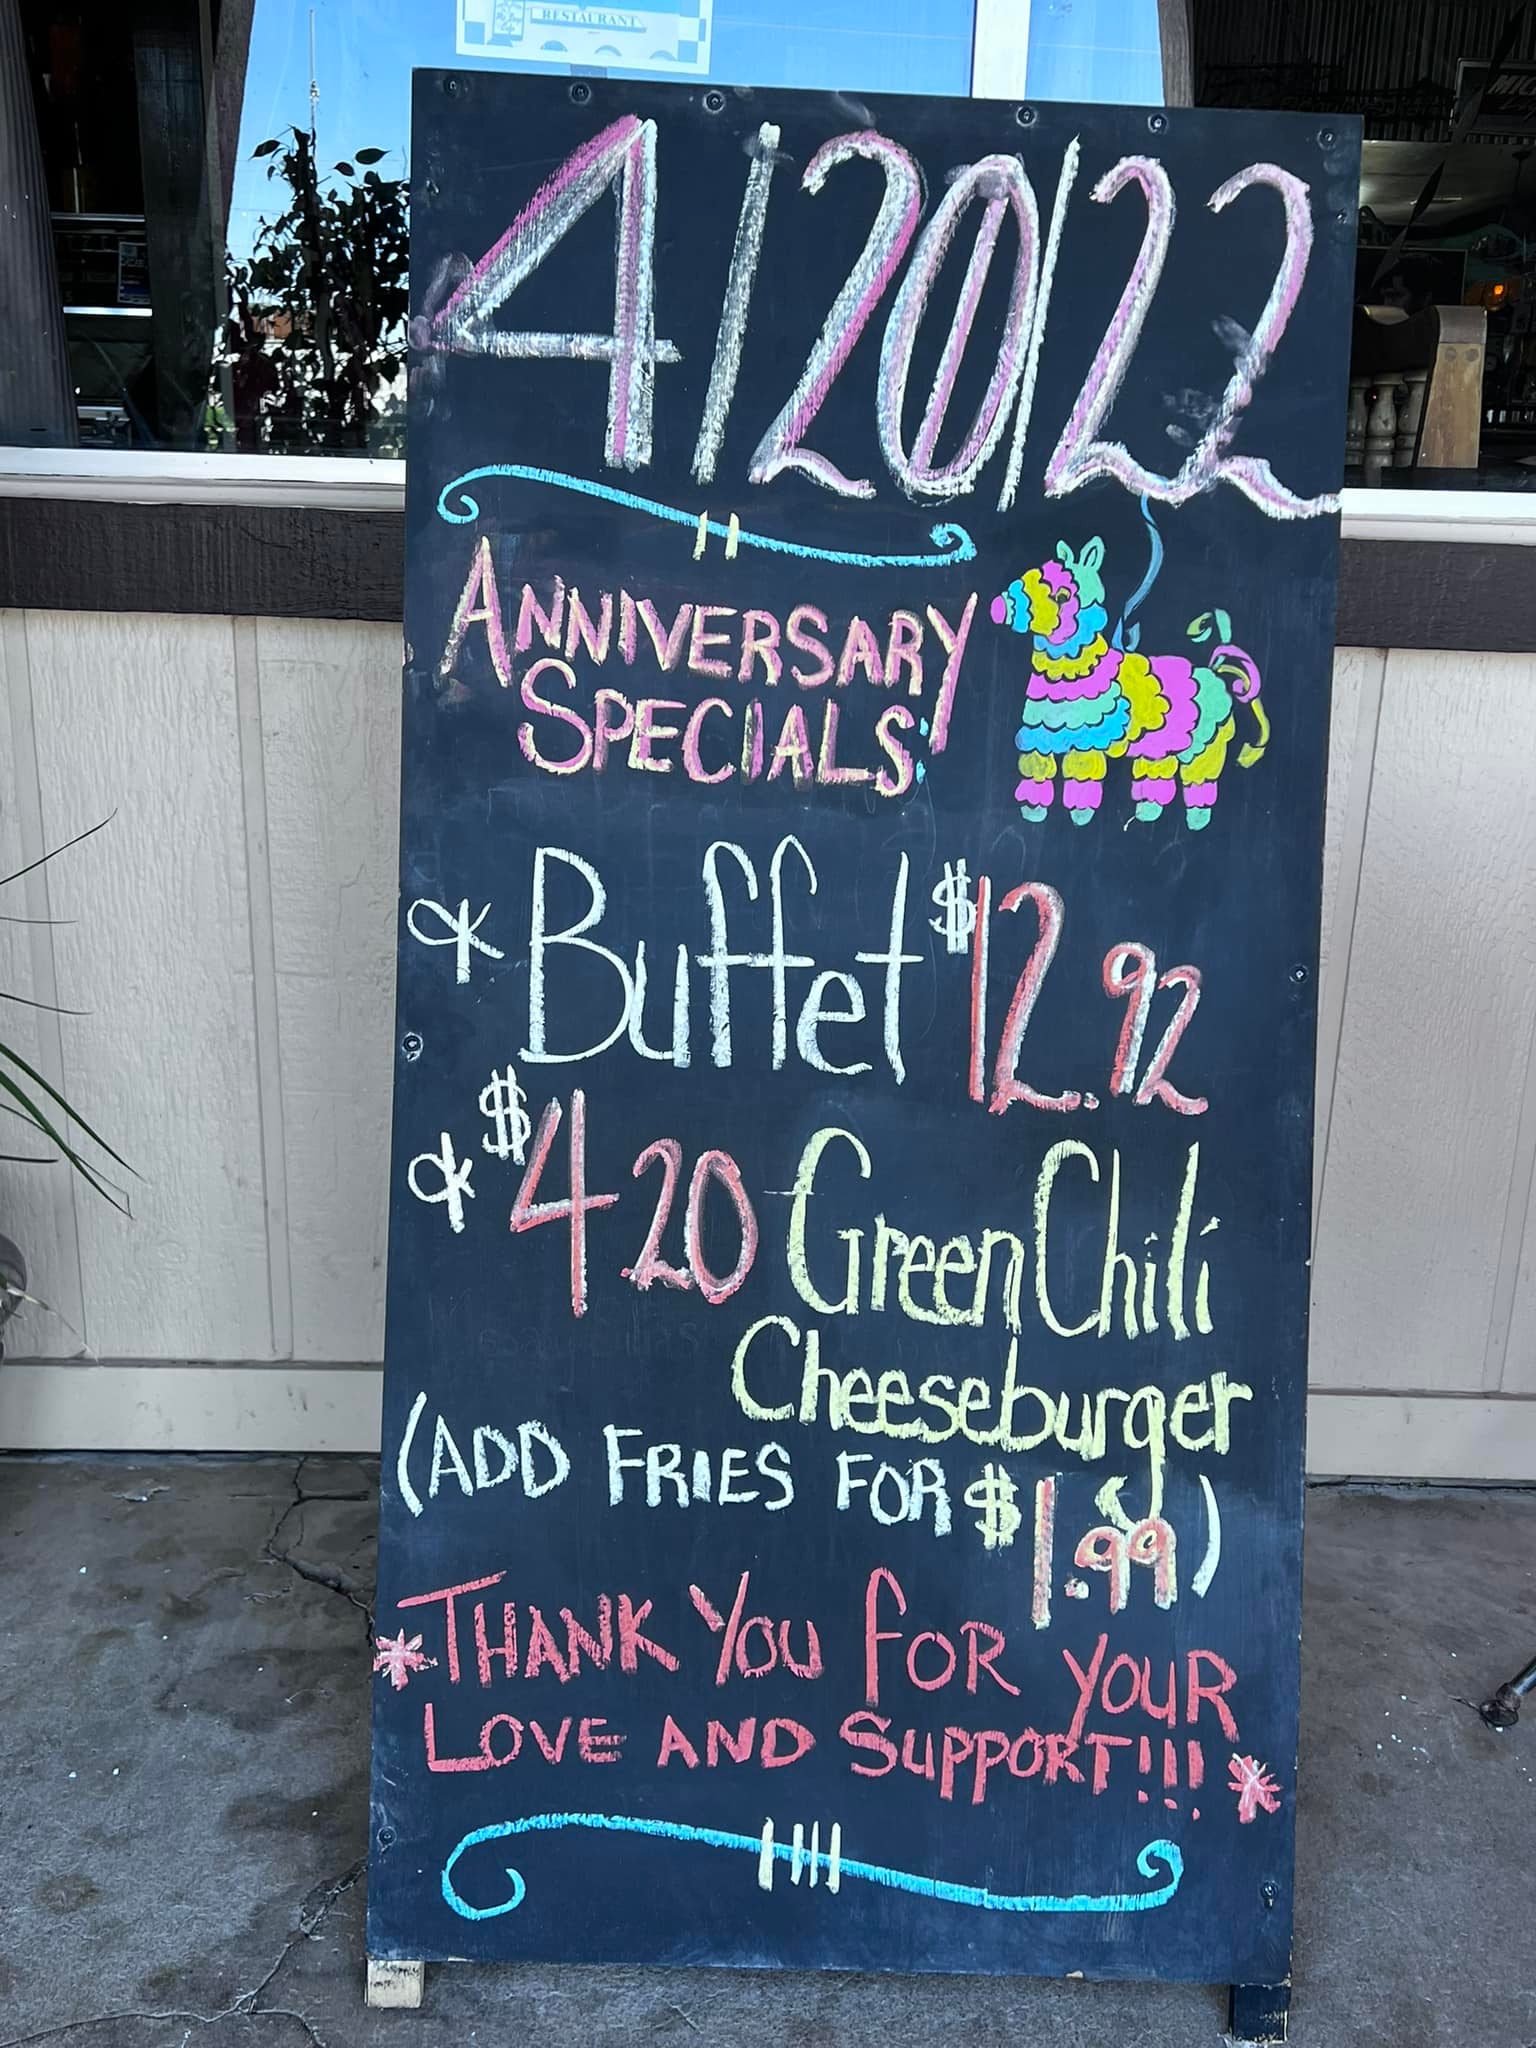 RESTAURANT
4/20/22
ANNIVERSARY
SPECIALS!
* Buffet $12.92
* $4.20 Green Chili
Cheeseburger
(ADD FRIES FOR $1.99)
*THANK YOU FOR YOUR
LOVE AND SUPPORT!!!*